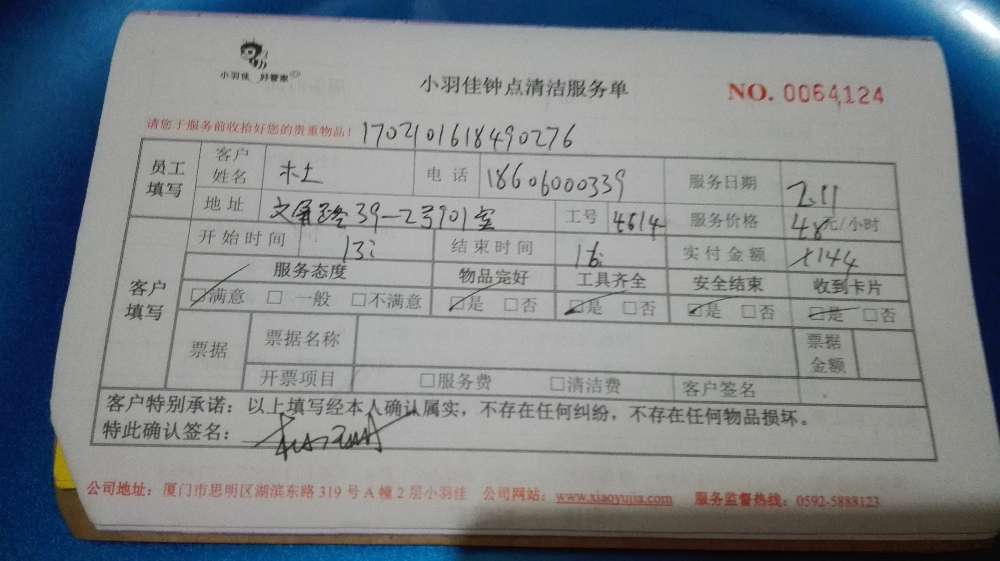 小羽佳 好管家
小羽佳钟点清洁服务单
NO. 0064124
请您于服务前收拾好您的贵重物品！ 1702101618490276
员工填写 客户姓名 木土 电话 18606000339 服务日期 2.11
地址 文屏路39-2号901室 工号 4614 服务价格 48元/小时
开始时间 13: 结束时间 16: 实付金额 ¥144
客户填写 服务态度 物品完好 工具齐全 安全结束 收到卡片
□满意 □一般 □不满意 □是 □否 □是 □否 □是 □否 □是 □否
票据 票据名称 票据金额
开票项目 □服务费 □清洁费 客户签名
客户特别承诺：以上填写经本人确认属实，不存在任何纠纷，不存在任何物品损坏。
特此确认签名：
公司地址：厦门市思明区湖滨东路319号A幢2层小羽佳 公司网站：www.xiaoyujia.com 服务监督热线：0592-5888123